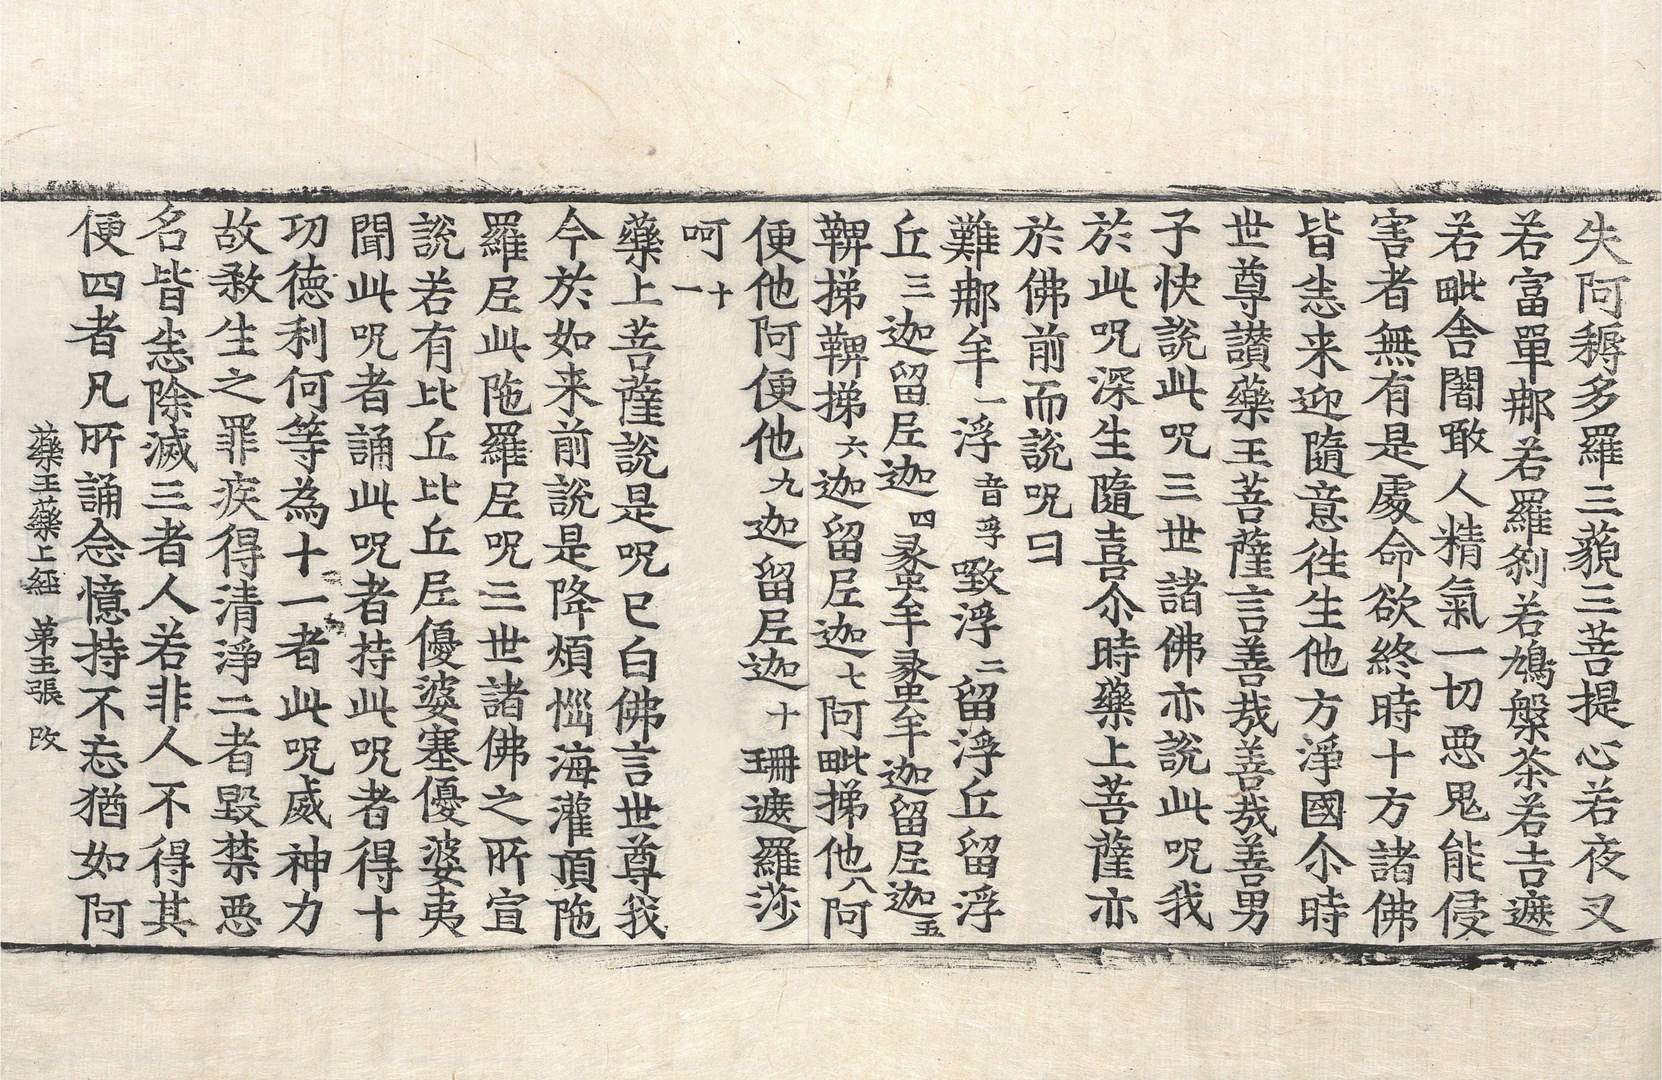 失阿耨多羅三藐三菩提心若夜叉
若富單那若羅刹若鳩槃荼若吉遮
若毗舍闍噉人精氣一切惡鬼能侵
害者無有是處命欲終時十方諸佛
皆悉来迎隨意往生他方淨國尒時
世尊讃藥王菩薩言善哉善哉善男
子快說此呪三世諸佛亦說此呪我
於此呪深生隨喜尒時藥上菩薩亦
於佛前而說呪曰
難那牟一浮音孚㗧浮二留浮丘留浮
丘三迦留尼迦四蟸牟蟸牟迦留尼迦五
鞞梯鞞梯六迦留尼迦七阿毗梯他八阿
便他阿便他九迦留尼迦十珊遮羅莎
呵十一
藥上菩薩說是呪已白佛言世尊我
今於如来前說是降煩惱海灌頂陁
羅尼此陁羅尼呪三世諸佛之所宣
說若有比丘比丘尼優婆塞優婆夷
聞此呪者誦此呪者持此呪者得十
功德利何等為十一者此呪威神力
故殺生之罪疾得清淨二者毀禁惡
名皆悉除滅三者人若非人不得其
便四者凡所誦念憶持不忘猶如阿
藥王藥上經 第五張 改